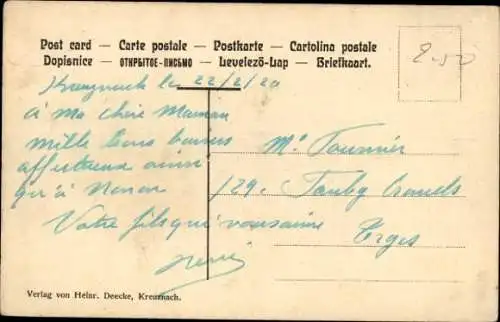 Post card — Carte postale — Postkarte — Cartolina postale
Dopisnice — ОТКРЫТОЕ-ПИСЬМО — Levelező-Lap — Briefkaart.
2.50
Kreuznach le 22/2/20
à ma chère Maman
mille bons baisers
affectueux ainsi
qu'à Nonon
Votre fils qui vous aime
René
Mr Fournier
129.
Verlag von Heinr. Deecke, Kreuznach.